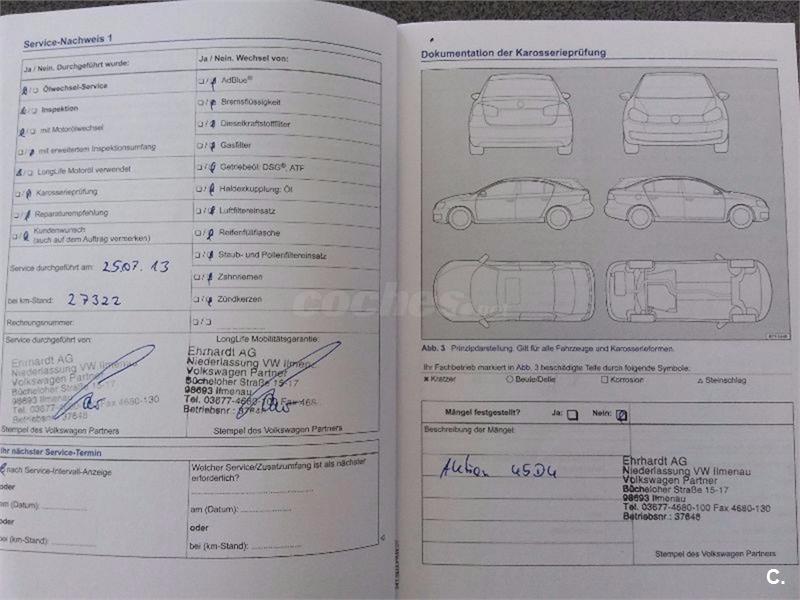 Service-Nachweis 1
Ja / Nein. Durchgeführt wurde:
Ölwechsel-Service
Inspektion
mit Motorölwechsel
mit erweitertem Inspektionsumfang
LongLife Motoröl verwendet
Karosserieprüfung
Reparaturempfehlung
Kundenwunsch
(auch auf dem Auftrag vermerken)
Service durchgeführt am: 25.07.13
bei km-Stand: 27322
Rechnungsnummer:
Service durchgeführt von:
Ehrhardt AG
Niederlassung VW Ilmenau
Volkswagen Partner
Bücheloher Straße 15-17
98693 Ilmenau
Tel. 03677-4680-100 Fax 4680-130
Betriebsnr.: 37648
Stempel des Volkswagen Partners
Ja / Nein. Wechsel von:
AdBlue®
Bremsflüssigkeit
Dieselkraftstofffilter
Gasfilter
Getriebeöl: DSG®, ATF
Haldexkupplung: Öl
Luftfiltereinsatz
Reifenfüllflasche
Staub- und Pollenfiltereinsatz
Zahnriemen
Zündkerzen
LongLife Mobilitätsgarantie:
Ehrhardt AG
Niederlassung VW Ilmenau
Volkswagen Partner
Bücheloher Straße 15-17
98693 Ilmenau
Tel. 03677-4680-100 Fax 468
Betriebsnr.: 37648
Stempel des Volkswagen Partners
Ihr nächster Service-Termin
nach Service-Intervall-Anzeige
oder
am (Datum):
oder
bei (km-Stand):
Welcher Service/Zusatzumfang ist als nächster
erforderlich?
am (Datum):
oder
bei (km-Stand):
Dokumentation der Karosserieprüfung
Abb. 3 Prinzipdarstellung. Gilt für alle Fahrzeuge und Karosserieformen.
Ihr Fachbetrieb markiert in Abb. 3 beschädigte Teile durch folgende Symbole:
Kratzer Beule/Delle Korrosion Steinschlag
Mängel festgestellt? Ja: Nein:
Beschreibung der Mängel:
Aktion 45D4
Ehrhardt AG
Niederlassung VW Ilmenau
Volkswagen Partner
Bücheloher Straße 15-17
98693 Ilmenau
Tel. 03677-4680-100 Fax 4680-130
Betriebsnr.: 37648
Stempel des Volkswagen Partners
coches.net
C.